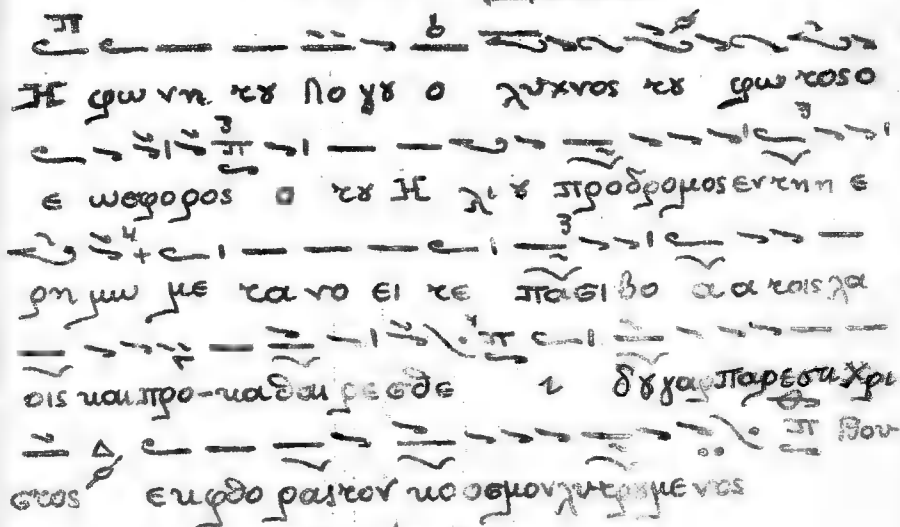 Η φω νη τȣ Λο γȣ ο λυχνος τȣ φω τος ο
ε ωσφορος ο τȣ Η λι ȣ προδρομος εν τη η ε
ρη μω με τα νο ει τε πασι βο α α τοις λα
οις και προ-καθαι ρεσθε ι δȣ γαρ παρεστι Χρι
στος εκ φθο ρας τον κο οσμον λυτρȣμε νος